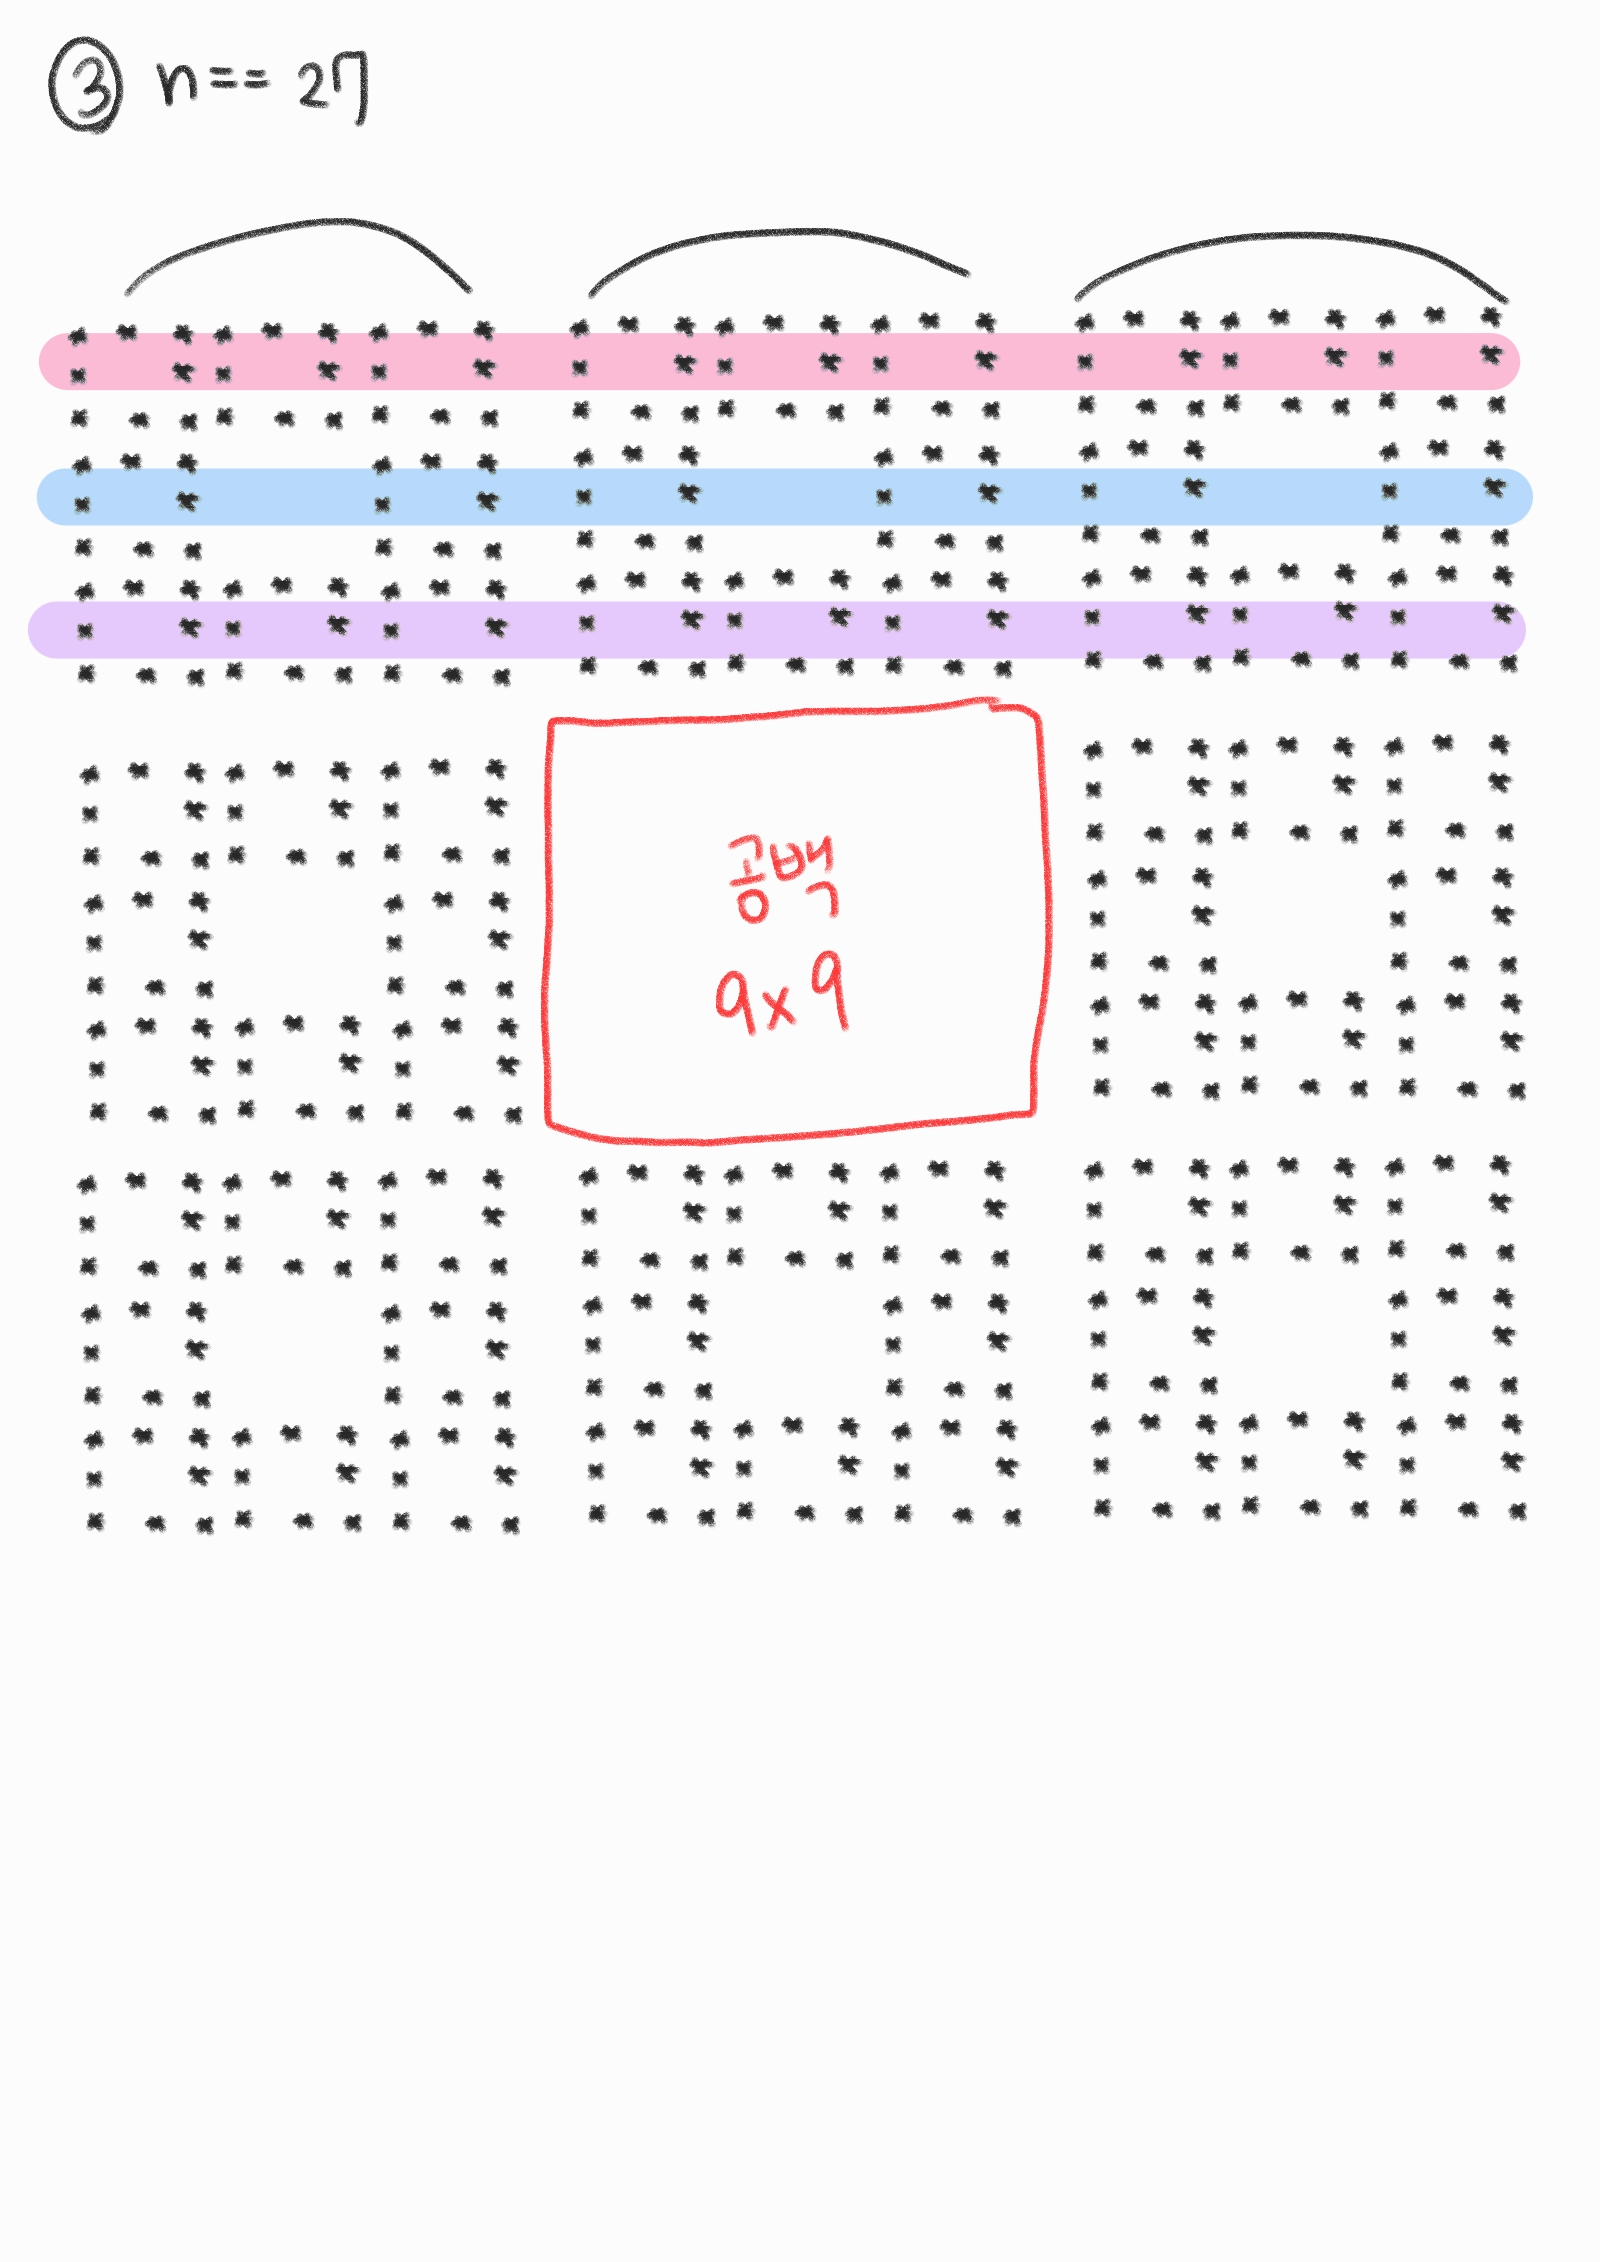 ③ n == 27
공백
9x9